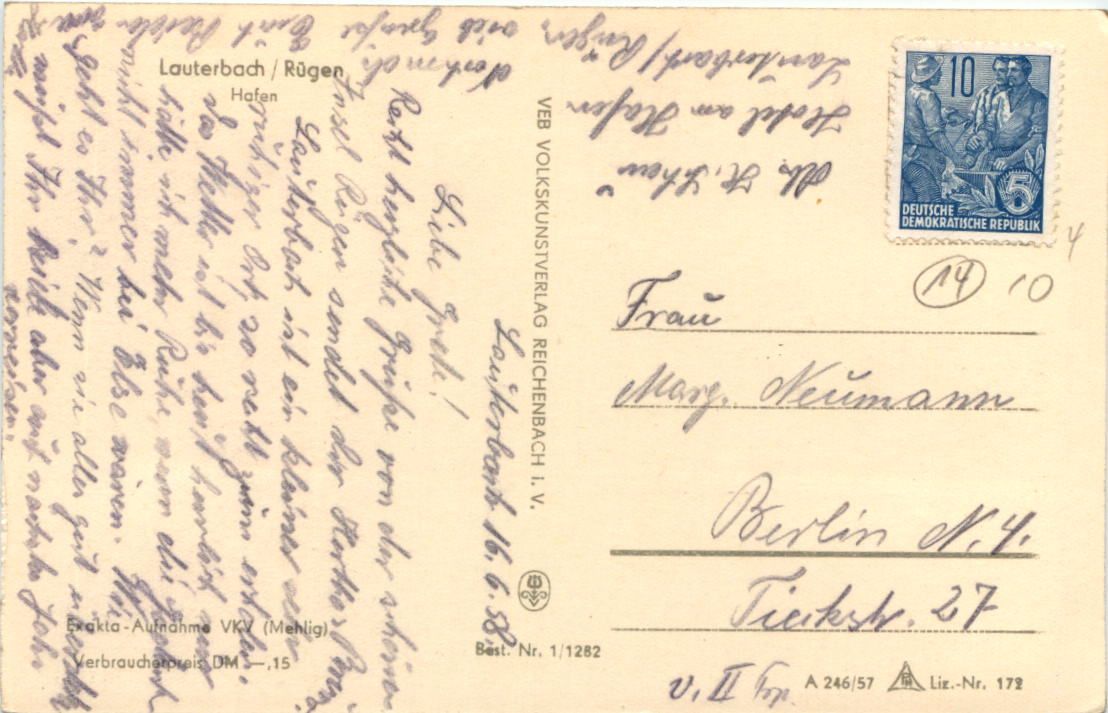 Lauterbach / Rügen
Hafen
Exakta-Aufnahme VKV (Mehlig)
Verbraucherpreis DM —,15
VEB VOLKSKUNSTVERLAG REICHENBACH i. V.
Best. Nr. 1/1282
Lauterbach 16.6.58.
Liebe Grete!
Recht herzliche Grüße von der schönen
Insel Rügen sendet dir Hertha
Lauterbach ist ein kleiner aber
ruhiger Ort, so recht zum erholen.
Das Wetter ist bis heut herrlich nur
hätte ich mehr Ruhe, wenn die
nicht immer bei Else wären. Wie
geht es Ihr? Wenn sie alles gut
müßt Ihr beide aber auf nächste Jahr
verreisen.
Nochmals viele Grüße
Abs. H.
Hotel am Hafen
Lauterbach/Rügen
10
5
DEUTSCHE
DEMOKRATISCHE REPUBLIK
4
14 10
Frau
Marg. Neumann
Berlin N. 4.
Tieckstr. 27
v. II
A 246/57 Liz.-Nr. 172